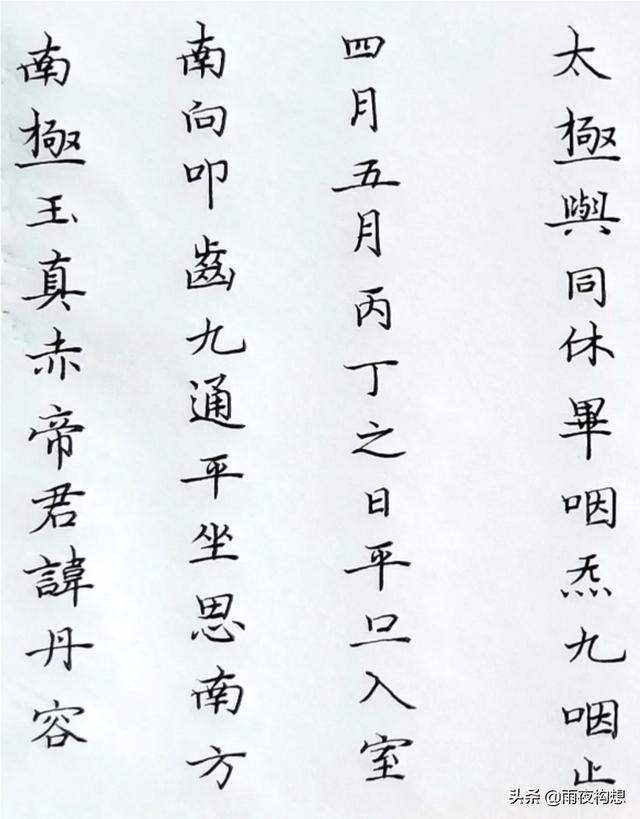 太極與同休畢咽炁九咽止
四月五月丙丁之日平旦入室
南向叩齒九通平坐思南方
南極玉真赤帝君諱丹容
头条 @雨夜构想